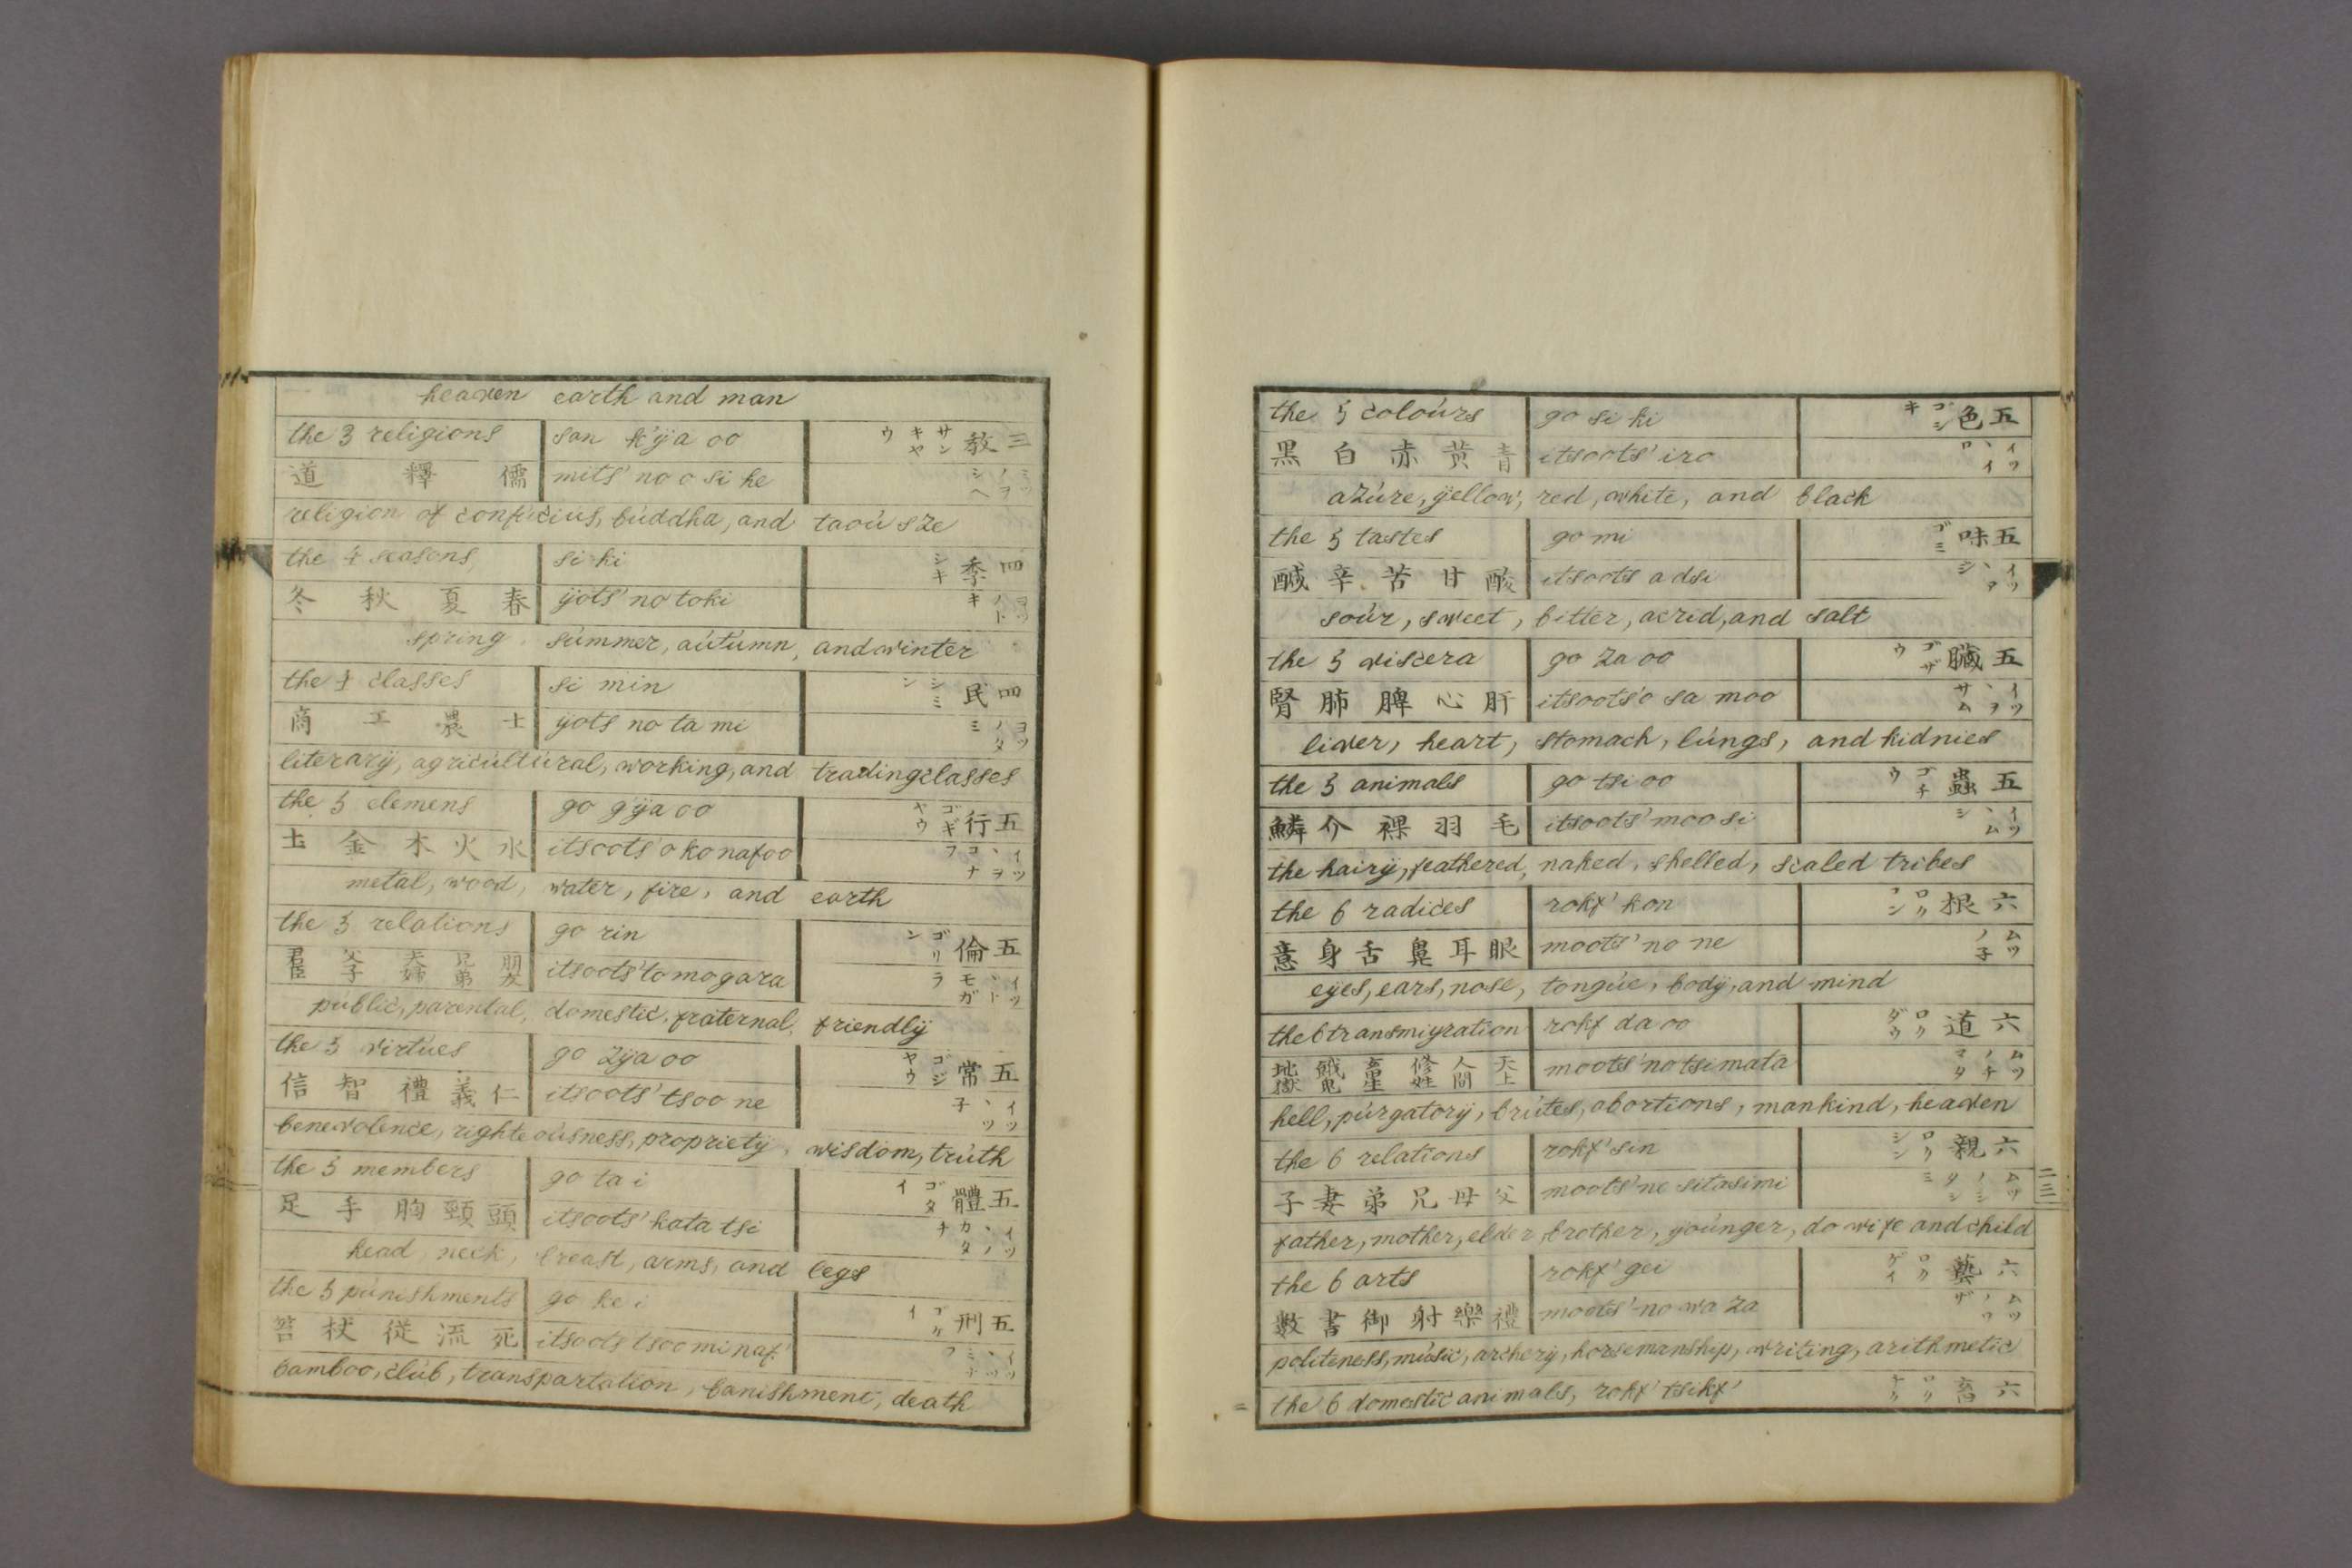 heaven earth and man
the 3 religions san k'ÿa oo サンキヤウ 教三
道 釋 儒 mits' no o si he ミツノヲシヘ
religion of confucius, búddha, and taoú sze
the 4 seasons, si ki シキ 季四
冬 秋 夏 春 ÿots' no toki ヨツノトキ
spring, súmmer, aútúmn, and winter
the 4 classes si min シミン 民四
商 工 農 士 ÿots no ta mi ヨツノタミ
literarÿ, agricúltúral, working, and trading classes
the 5 elemens go g'ÿa oo ゴギヤウ 行五
土 金 木 火 水 itsoots' o ko nafoo イツヽヲコナフ
metal, wood, water, fire, and earth
the 5 relations go rin ゴリン 倫五
君臣 父子 夫婦 兄弟 朋友 itsoots' to mo gara イツヽトモガラ
públic, parental, domestic, fraternal, friendlÿ
the 5 virtúes go zÿa oo ゴジヤウ 常五
信 智 禮 義 仁 itsoots' tsoo ne イツヽツ子
benevolence, righteoúsness, proprietÿ, wisdom, trúth
the 5 members go ta i ゴタイ 體五
足 手 胸 頸 頭 itsoots' kata tsi イツヽノカタチ
head, neck, breast, arms, and legs
the 5 púnishments go ke i ゴケイ 刑五
笞 杖 從 流 死 itsoots tsoo mi naf' イツヽツミナフ
bamboo, clúb, transpartation, banishment, death
the 5 coloúrs go si ki ゴシキ 色五
黒 白 赤 黄 青 itsoots' iro イツヽイロ
azúre, ÿellow, red, white, and black
the 5 tastes go mi ゴミ 味五
醎 辛 苦 甘 酸 itsoots adsi イツヽアシ
soúr, sweet, bitter, acrid, and salt
the 5 viscera go za oo ゴザウ 臓五
腎 肺 脾 心 肝 itsoots' o sa moo イツヽヲサム
liver, heart, stomach, lúngs, and kidnies
the 5 animals go tsi oo ゴチウ 蟲五
鱗 介 裸 羽 毛 itsoots' moo si イツヽムシ
the hairÿ, feathered, naked, shelled, scaled tribes
the 6 radices rokf' kon ロクコン 根六
意 身 舌 鼻 耳 眼 moots' no ne ムツノ子
eÿes, ears, nose, tongúe, bodÿ, and mind
the 6 transmigration rokf da oo ロクダウ 道六
地獄 餓鬼 畜生 修姓 人間 天上 moots' no tsi mata ムツノチマタ
hell, púrgatorÿ, brútes, abortions, mankind, heaven
the 6 relations rokf' sin ロクシン 親六
子 妻 弟 兄 母 父 moots' ne sitasimi ムツノシタシミ
father, mother, elder brother, yoúnger, do wife and child
the 6 arts rokf' gei ロクゲイ 藝六
數 書 御 射 樂 禮 moots' no wa za ムツノワザ
politeness, músic, archerÿ, horsemanship, writing, arithmetic
the 6 domestic animals, rokf' tsikf' ロクチク 畜六
二三